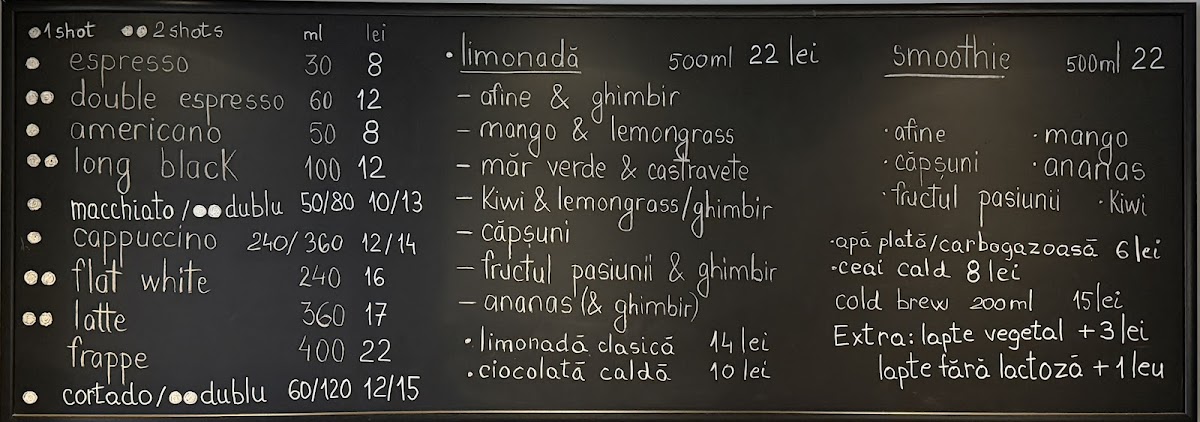 1 shot 2 shots ml lei
espresso 30 8
double espresso 60 12
americano 50 8
long black 100 12
macchiato/ dublu 50/80 10/13
cappuccino 240/360 12/14
flat white 240 16
latte 360 17
frappe 400 22
cortado/ dublu 60/120 12/15
• limonadă 500ml 22 lei
– afine & ghimbir
– mango & lemongrass
– măr verde & castravete
– Kiwi & lemongrass/ghimbir
– căpșuni
– fructul pasiunii & ghimbir
– ananas (& ghimbir)
• limonadă clasică 14 lei
• ciocolată caldă 10 lei
smoothie 500ml 22
· afine · mango
· căpșuni · ananas
· fructul pasiunii · Kiwi
· apă plată/carbogazoasă 6 lei
· ceai cald 8 lei
cold brew 200ml 15 lei
Extra: lapte vegetal + 3 lei
lapte fără lactoză + 1 leu